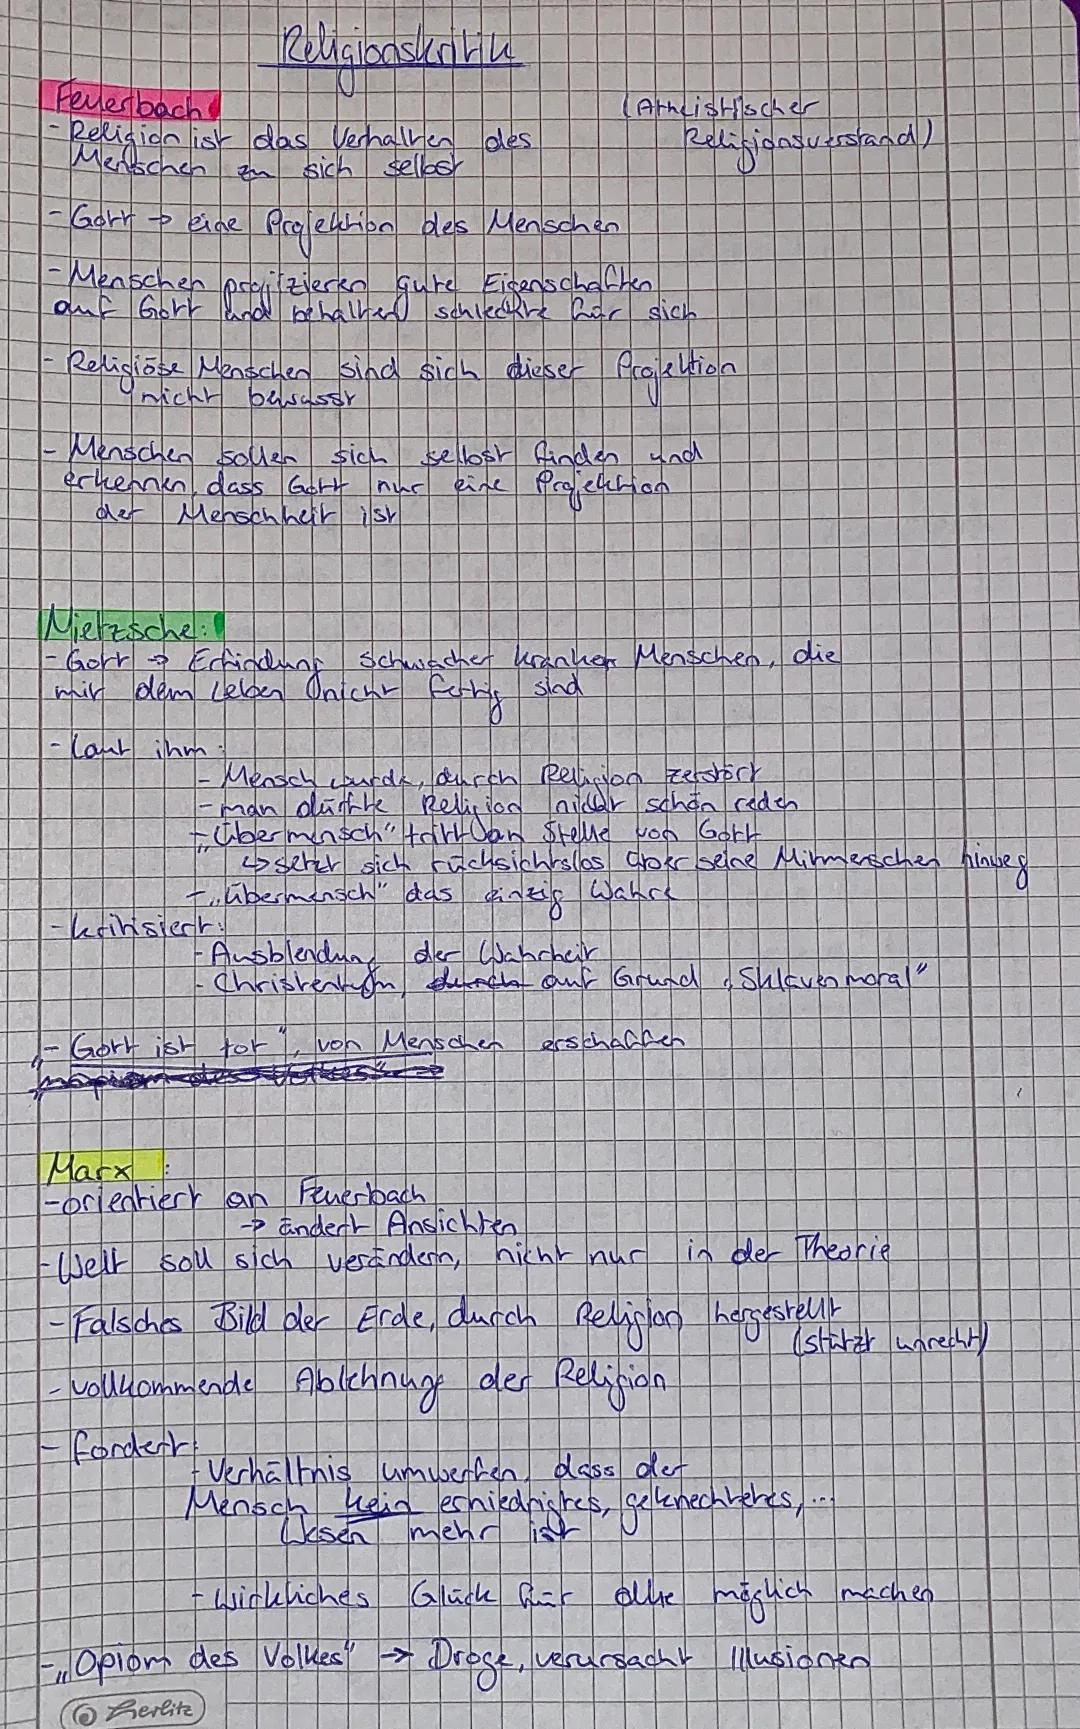 Religionskritik
Feuerbach:
(Atheistischer
Religionsverstand)
- Religion ist das Verhalten des
Menschen zu sich selbst
- Gott → eine Projektion des Menschen
- Menschen projizieren gute Eigenschaften
auf Gott und behalten schlechte für sich
- Religiöse Menschen sind sich dieser Projektion
nicht bewusst
- Menschen sollen sich selbst finden und
erkennen, dass Gott nur eine Projektion
der Menschheit ist
Nietzsche:
- Gott → Erfindung schwacher kranker Menschen, die
mit dem Leben nicht fertig sind
- laut ihm:
- Mensch wurde, durch Religion zerstört
- man dürfte Religion nicht schön reden
- „Übermensch" tritt an Stelle von Gott
↳ setzt sich rücksichtslos über seine Mitmenschen hinweg
- „Übermensch" das einzig Wahre
- kritisiert:
- Ausblendung der Wahrheit
- Christentum, durch auf Grund „Sklavenmoral"
- „Gott ist tot", von Menschen erschaffen
„Opium des Volkes"
Marx:
- orientiert an Feuerbach
→ ändert Ansichten
- Welt soll sich verändern, nicht nur in der Theorie
- Falsches Bild der Erde, durch Religion hergestellt
(stützt unrecht)
- vollkommende Ablehnung der Religion
- fordert:
- Verhältnis umwerfen, dass der
Mensch kein erniedrigtes, geknechtetes, ...
Wesen mehr ist
- wirkliches Glück für alle möglich machen
- „Opiom des Volkes" → Droge, verursacht Illusionen
herlitz